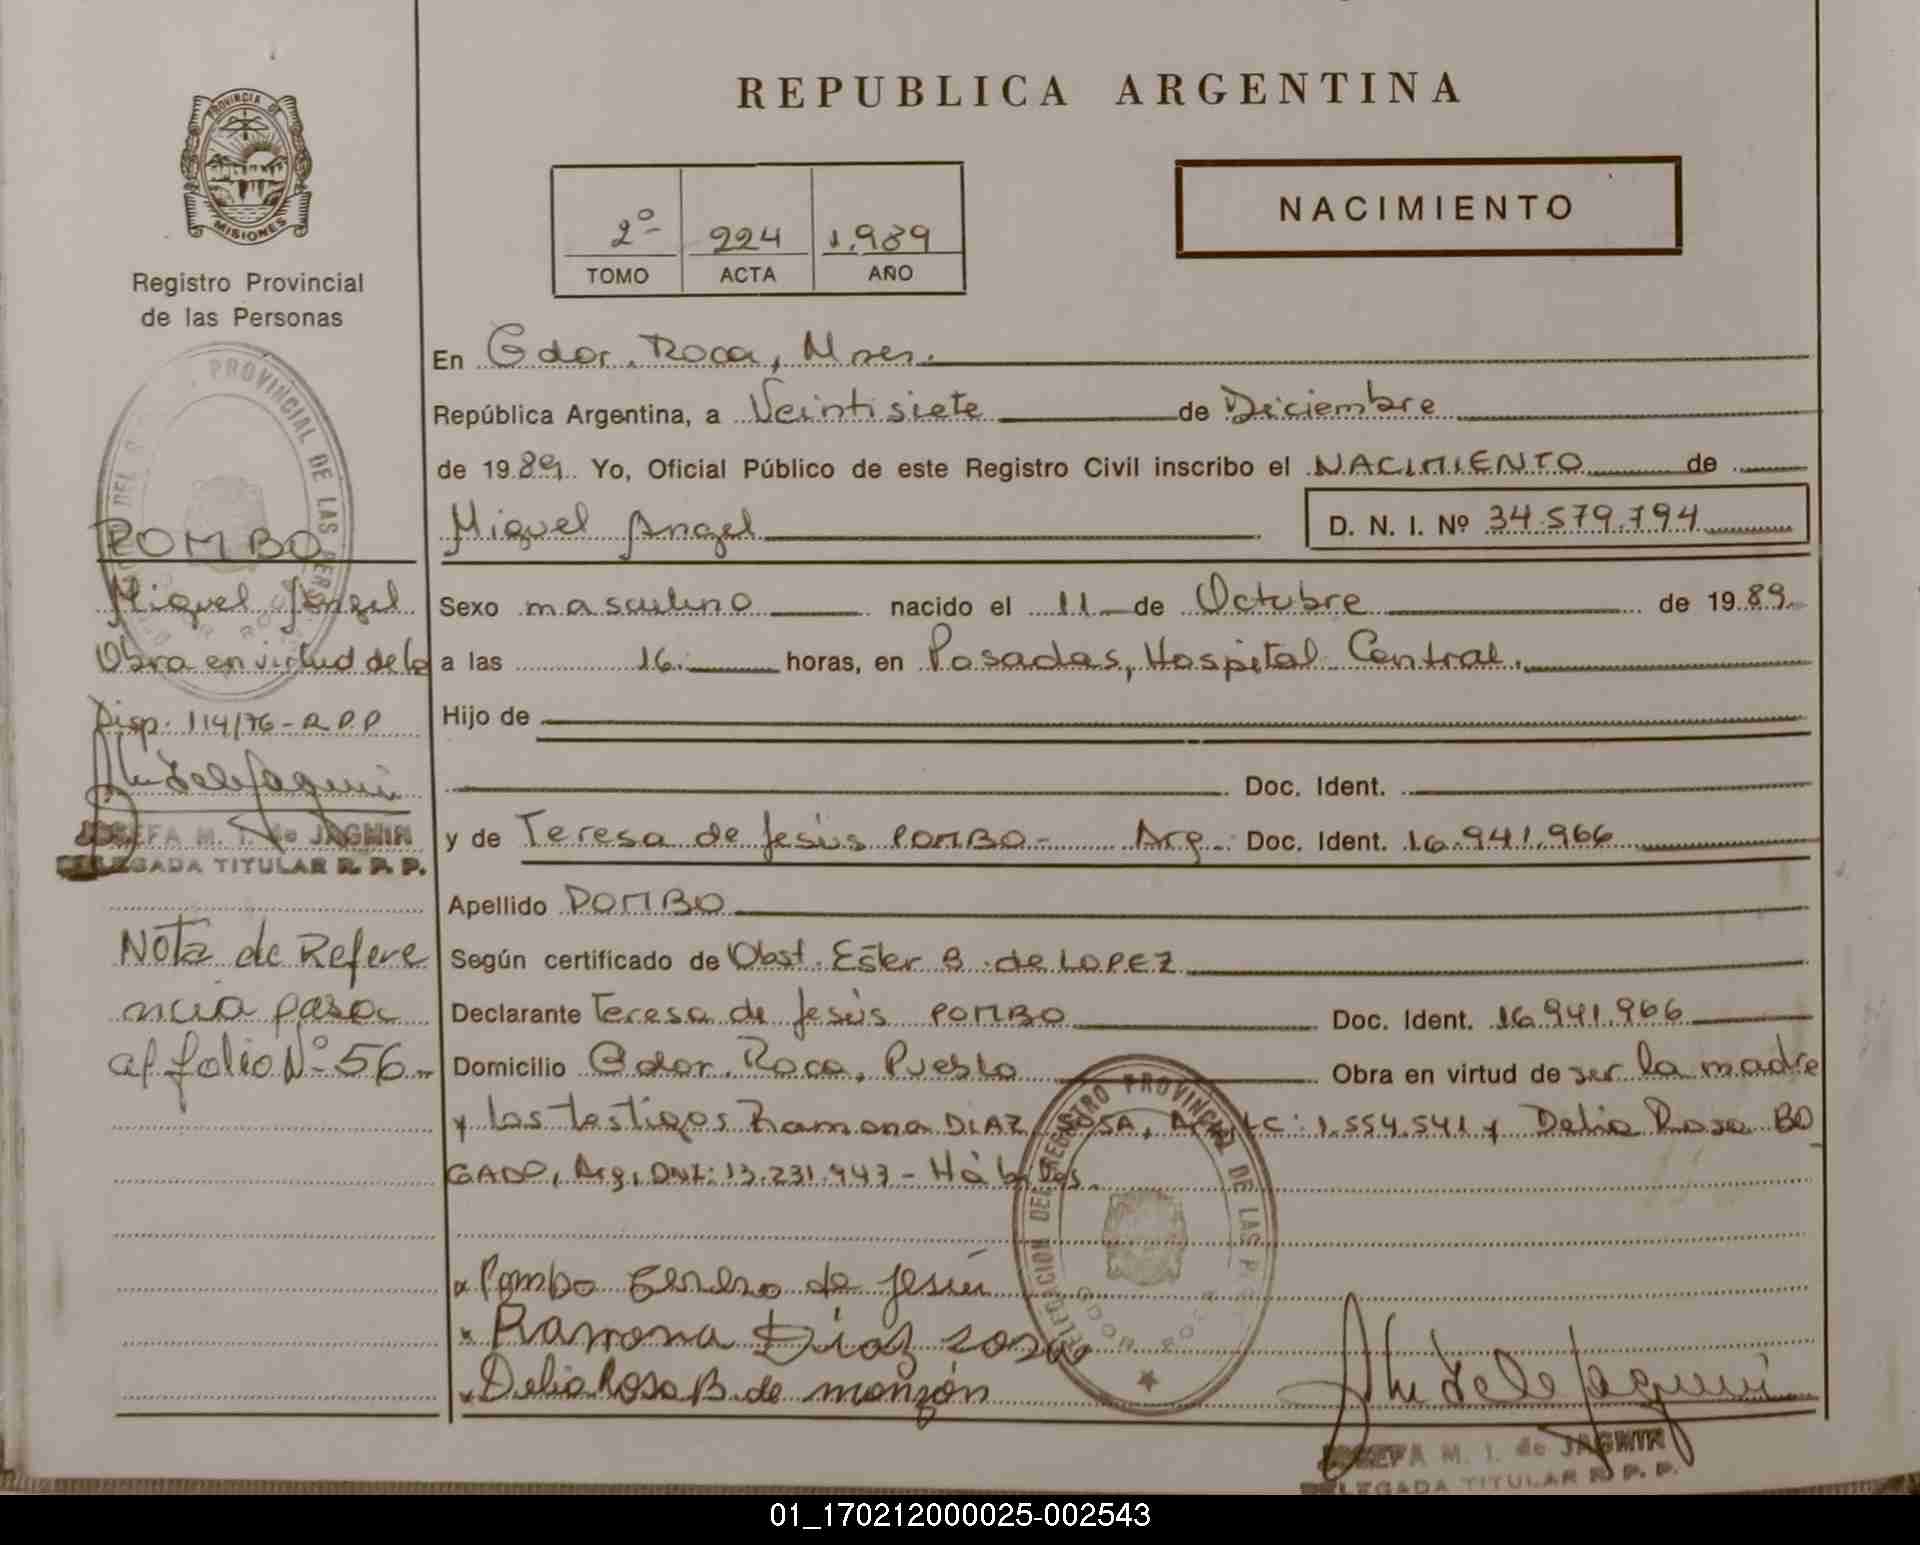 REPUBLICA ARGENTINA
PROVINCIA DE
MISIONES
Registro Provincial
de las Personas
2º 224 1.989
TOMO ACTA AÑO
NACIMIENTO
En Gdor. Roca, Mnes.
República Argentina, a Veintisiete de Diciembre
de 1989. Yo, Oficial Público de este Registro Civil inscribo el NACIMIENTO de
Miguel Angel D. N. I. Nº 34.579.794
Sexo masculino nacido el 11 de Octubre de 1989.
a las 16. horas, en Posadas, Hospital Central.
Hijo de
Doc. Ident.
y de Teresa de Jesús POMBO- Arg. Doc. Ident. 16.941.966
Apellido POMBO
Según certificado de Obst. Ester B. de LOPEZ
Declarante Teresa de Jesús POMBO Doc. Ident. 16.941.966
Domicilio Gdor. Roca, Pueblo Obra en virtud de ser la madre
y los testigos Ramona DIAZ SOSA, LC: 1.554.541 y Delia Rosa BO
GADO, Arg, DNI: 13.231.943 - Hábiles.
Pombo de Jesús
Ramona Díaz Sosa
Delia Rosa B. de monzón
JOSEFA M. I. de JAGMIN
DELEGADA TITULAR R. P. P.
PROVINCIAL DE LAS
POMBO
Miguel Angel
Obra en virtud de la
Disp. 114/76 - R.P.P
JOSEFA M. I. de JAGMIN
DELEGADA TITULAR R. P. P.
Nota de Refere
ncia pasa
al folio Nº 56-
DELEGACION DEL REGISTRO PROVINCIAL DE LAS
GDOR ROCA
01_170212000025-002543